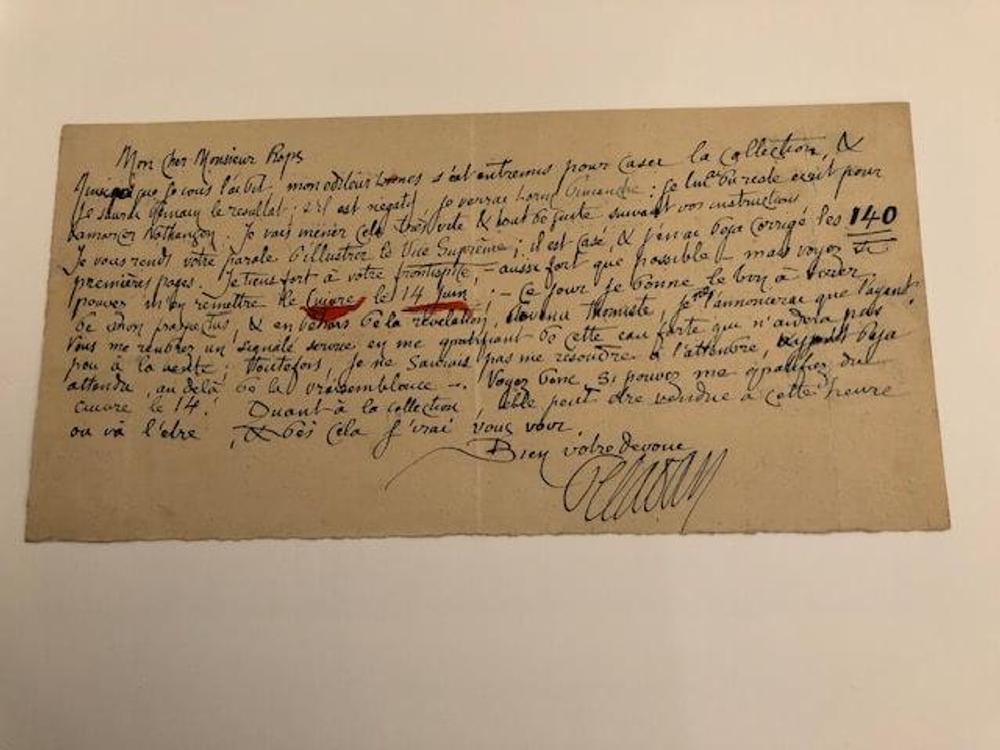 Mon Cher Monsieur Rops
Ainsi que je vous l'ai dit, mon editeur s'est entremis pour caser la collection, &
je saurai demain le resultat; s'il est negatif je verrai Dimanche: je lui du reste ecrit pour
. Je vais mener cela très vite & tout de suite suivant vos instructions
Je vous rends votre parole d'illustrer le Vice Suprême; il est casé, & j'en ai deja corrigé les 140
premières pages. Je tiens fort à votre frontispice, – aussi fort que possible – mais voyez si
pouvez m'en remettre le Cuivre le 14 Juin; – Ce jour je donne le bon à tirer
de mon prospectus, & en dehors de la révélation, je ne l'annoncerai que l'ayant.
Vous me rendrez un signalé service en me gratifiant de cette eau forte qui n'aidera pas
peu à la vente; toutefois, je ne saurais pas me résoudre à l'attendre, ayant deja
attendu, au delà de la vraisemblance –. Voyez donc si pouvez me gratifiez du
cuivre le 14. Quant à la collection, elle peut être vendue à cette heure
ou va l'etre, & dès cela j'irai vous voir.
Bien votre devoué
Peladan